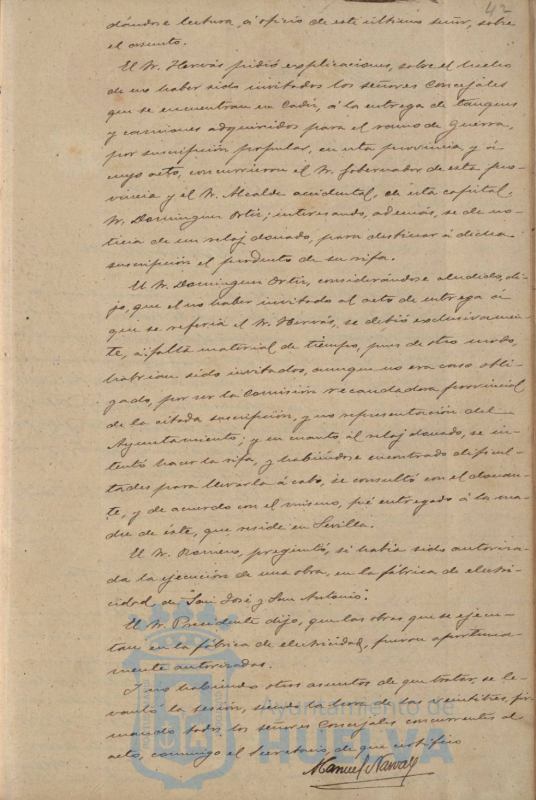 42
dándose lectura, á oficio de este último señor, sobre
el asunto.
El Sr. Hervás pidió explicaciones, sobre el hecho
de no haber sido invitados los señores Concejales
que se encuentran en Cadiz, á la entrega de tanques
y camiones adquiridos para el ramo de Guerra,
por suscripción popular, en esta provincia y á
cuyo acto, concurrieron el Sr. Gobernador de esta pro-
vincia y el Sr. Alcalde accidental, de esta capital,
Sr. Dominguez Ortiz; interesando, además, se de no-
ticia de un reloj donado, para destinar á dicha
suscripción el producto de su rifa.
El Sr. Dominguez Ortiz, considerándose aludido, di-
jo, que el no haber invitado al acto de entrega á
que se referia el Sr. Hervás, se debió exclusivamen-
te, á falta material de tiempo, pues de otro modo,
habrian sido invitados, aunque no era caso obli-
gado, por ser la Comisión recaudadora provincial
de la citada suscripción, y no representación del
Ayuntamiento; y en cuanto al reloj donado, se in-
tentó hacer la rifa, y habiéndose encontrado dificul-
tades para llevarla á cabo, se consultó con el donan-
te, y de acuerdo con el mismo, fué entregado á la ma-
dre de éste, que reside en Sevilla.
El Sr. Romero, preguntó, si habia sido autoriza-
da la ejecución de una obra, en la fábrica de electri-
cidad, de "San José y San Antonio".
El Sr. Presidente dijo, que las obras que se ejecu-
tan en la fábrica de electricidad, fueron oportuna-
mente autorizadas.
Y no habiendo otros asuntos de que tratar, se le-
vantó la sesión, siendo la hora de las veintitres, fir-
mando todos los señores Concejales concurrentes al
acto, conmigo el Secretario, de que certifico
Manuel Narvaez
Ayuntamiento de
HUELVA